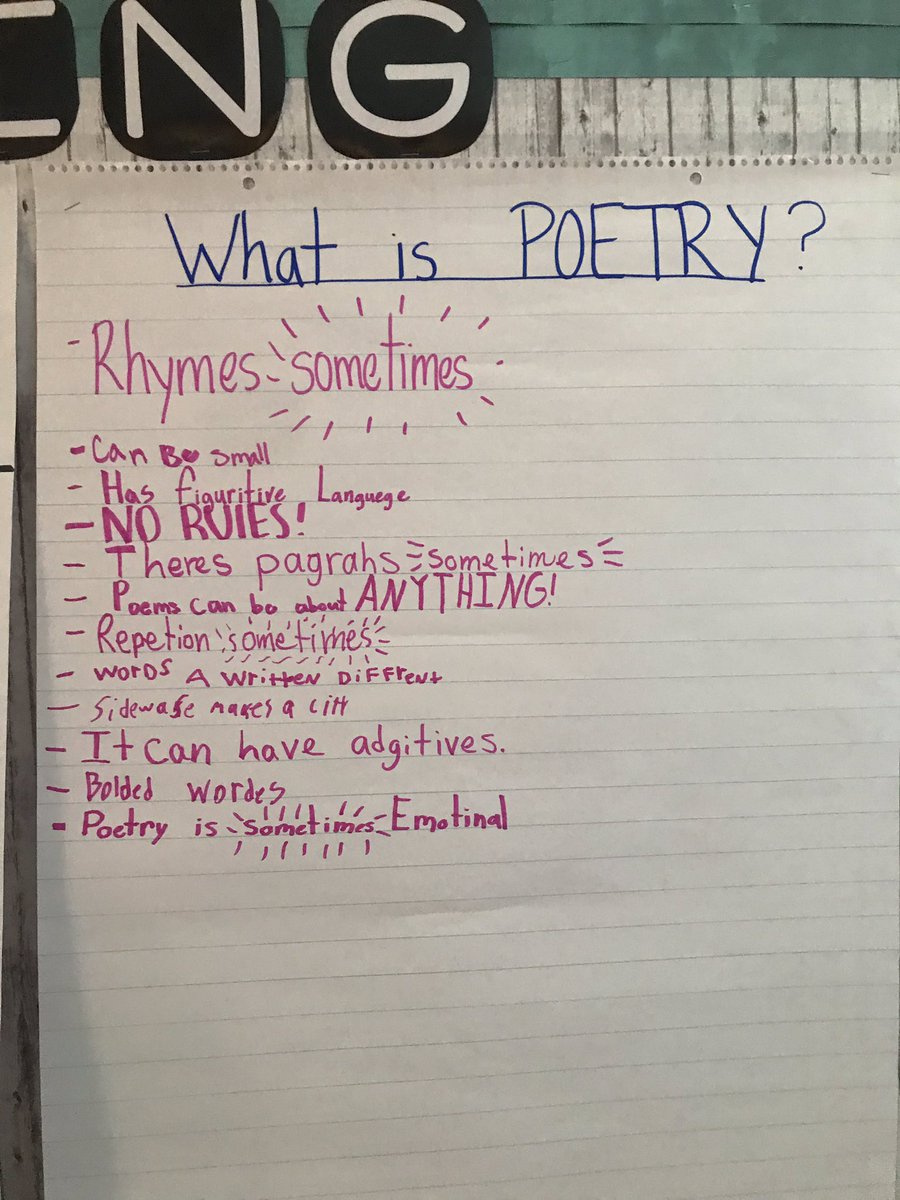 ING
What is POETRY?
- Rhymes sometimes
- Can Be small
- Has figuritive Languege
- NO RUlES!
- Theres pagrahs sometimes
- Poems can be about ANYTHING!
- Repetion sometimes
- WORDS A WRITTEN DIFFTENT
- Sidewase makes a
- It can have adgitives.
- Bolded wordes
- Poetry is sometimes Emotinal